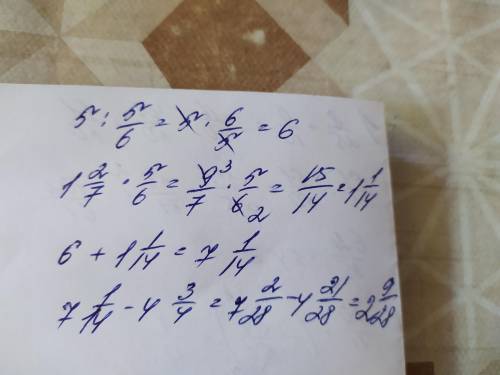 5 : 5/6 = 5 · 6/5 = 6
1 2/7 · 5/6 = 9³/7 · 5/6₂ = 15/14 = 1 1/14
6 + 1 1/14 = 7 1/14
7 1/14 - 4 3/4 = 7 2/28 - 4 21/28 = 2 9/28